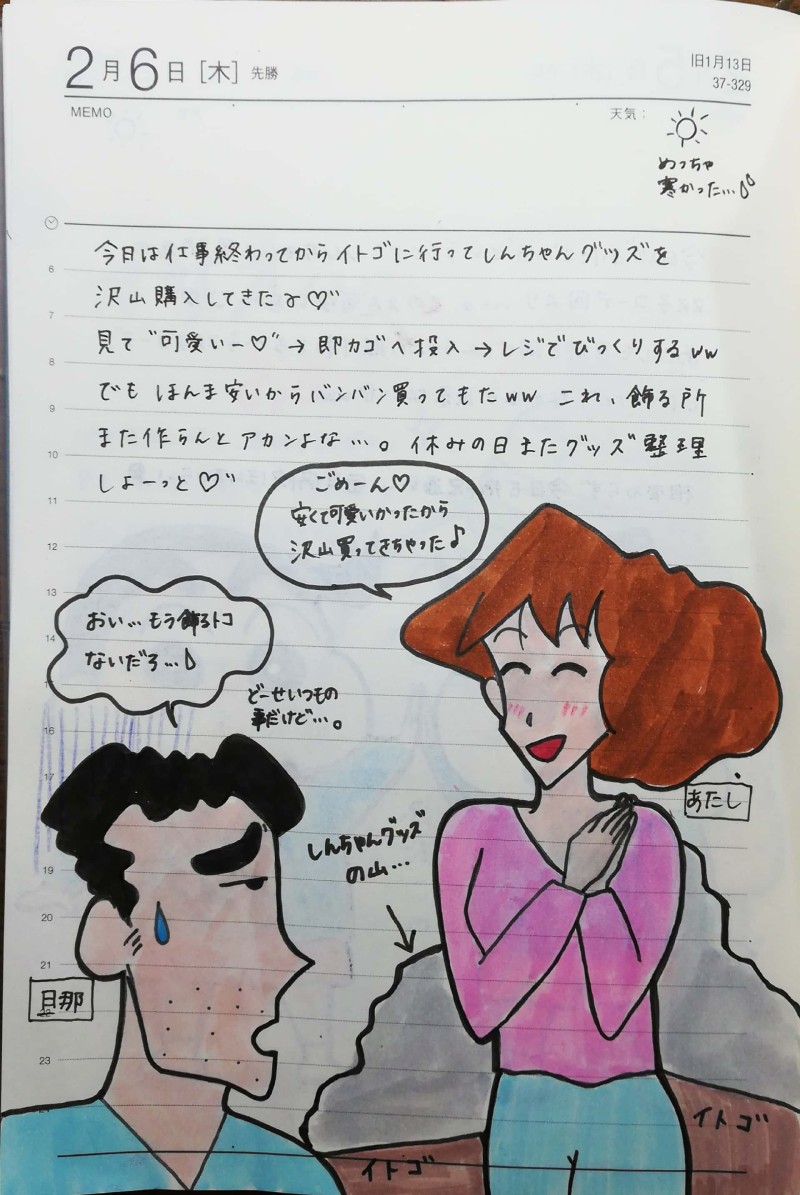 2月6日[木]先勝
旧1月13日
37-329
MEMO
天気:
めっちゃ
寒かった…
6
7
8
9
10
11
12
13
14
16
17
19
20
21
22
23
今日は仕事終わってからイトゴに行ってしんちゃんグッズを
沢山購入してきたよ♡"
見て"可愛いー♡"→即カゴへ投入→レジでびっくりするww
でもほんま安いからバンバン買ってもたww これ、飾る所
また作らんとアカンよな…。休みの日またグッズ整理
しよーっと♡"
ごめーん♡
安くて可愛いかったから
沢山買ってきちゃった♪
おい…もう飾るトコ
ないだろ…
どーせいつもの
事だけど…。
あたし
しんちゃんグッズ
の山…
旦那
イトゴ
イトゴ